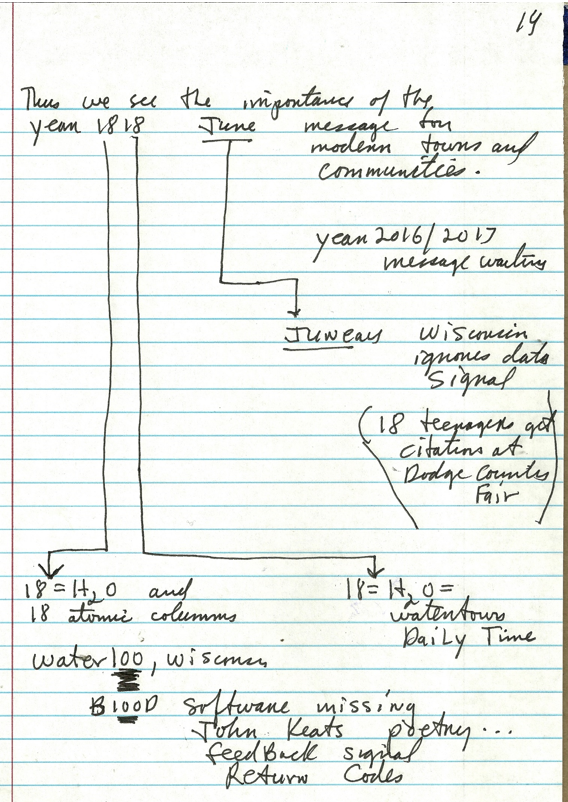 14
Thus we see the importance of the
year 1818 June message for
modern towns and
communities.
year 2016/2017
message waiting
Juneau Wisconsin
ignores data
signal
(18 teenagers get
citations at
Dodge County
Fair)
18 = H2O and
18 atomic columns
18 = H2O =
watertown
Daily Time
water100, wisconsin
B100D software missing
John Keats poetry...
feedBack signal
Return Codes